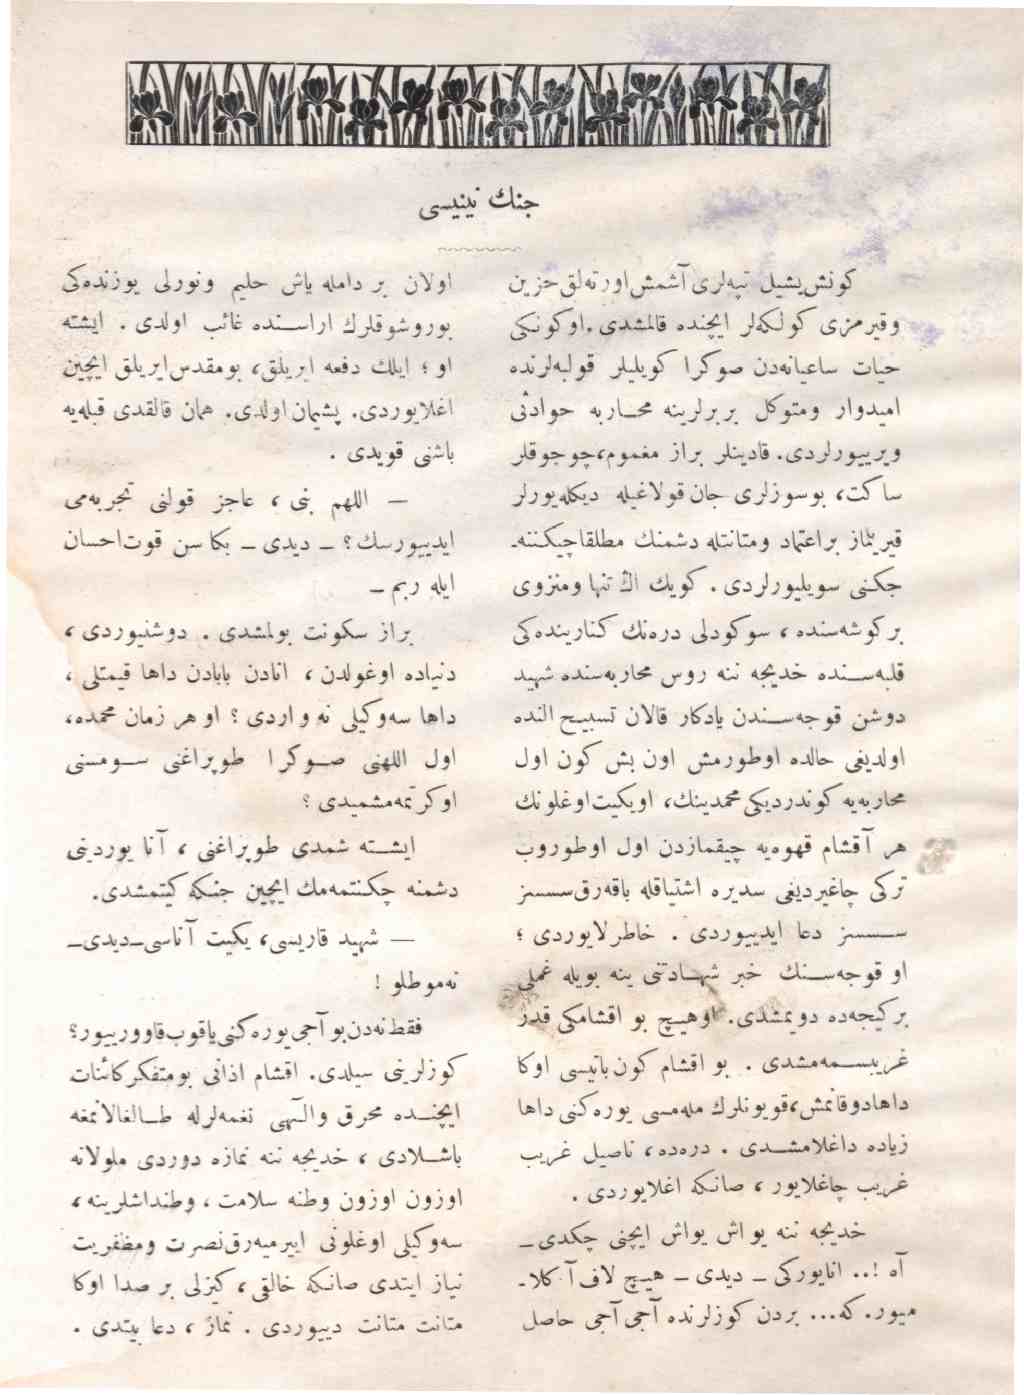 جنك نینیسی
كونش یشیل تپه‌لری آشمش اورته‌لق حزین
وقیرمزی كولكه‌لر ایچنده قالمشدی. اوكونكی
حیات ساعیانه‌دن صوكرا كویلیلر قولبه‌لرنده
امیدوار ومتوكل بربرلرینه محـاربه حوادثی
ویرییورلردی. قادینلر براز مغموم، چوجوقلر
ساكت، بوسوزلری جان قولاغیله دیكله‌یورلر
قیریلماز براعتماد ومتانتله دشمنك مطلقا چیكننه‌ـ
جكنی سویلیورلردی. كویك اڭ تنها ومنزوی
بركوشه‌سنده، سوكودلی دره‌نك كنارینده‌كی
قلبه‌ســنده خدیجه ننه روس محاربه‌سنده شهید
دوشن قوجه‌ســندن یادكار قالان تسبیـح النده
اولدیغی حالده اوطورمش اون بش كون اول
محاربه‌یه كوندردیكی محمدینك، اویكیت اوغلونك
هر آقشام قهوه‌یه چیقمازدن اول اوطوروب
تركی چاغیردیغی سدیره اشتیاقله باقه‌رق سسسز
ســسسز دعا ایدییوردی. خاطرلایوردی؛
او قوجه‌ســنك خبر شهـادتنی ینه بویله غملی
بركیجه‌ده دویمشدی. اوهیـچ بو اقشامكی قدر
غریبســمه‌مشدی. بو اقشام كون باتیسی اوكا
داها دوقانمش، قویونلرك مله‌مسی یوره‌كنی داها
زیاده داغلامشــدی. دره‌ده، ناصیل غریب
غریب چاغلایور، صانكه اغلایوردی.
خدیجه ننه یواش یواش ایچنی چكدی ــ
آه!.. انایوركی ــ دیدی ــ هیـچ لاف آكلاـ
میور. كه... بردن كوزلرنده آجی آجی حاصل
اولان بر دامله یاش حلیم ونورلی یوزنده‌كی
بوروشوقلرك اراســنده غائب اولدی. ایشته
او؛ ایلك دفعه ایریلق، بومقدس ایریلق ایچین
اغلایوردی. پشیمان اولدی. همان قالقدی قبله‌یه
باشنی قویدی.
— اللهم بنی، عاجز قولنی تجربه‌می
ایدییورسك؟ ــ دیدی ــ بكا سن قوت احسان
ایله ربم ــ
براز سكونت بولمشدی. دوشنیوردی،
دنیاده اوغولدن، انادن بابادن داها قیمتلی،
داها سه‌وكیلی نه واردی؟ او هر زمان محمده،
اول اللهنی صــوكرا طوپراغنی ســومسنی
اوكرتمه‌مشمیدی؟
ایشــته شمدی طوپراغنی، آنا یوردینی
دشمنه چكنتمه‌مك ایچین جنكه كیتمشدی.
— شهید قاریسی، یكیت آناسی ــ دیدی ــ
نه‌موطلو!
فقط نه‌دن بو آجی یوره‌كنی یاقوب قاوورییور؟
كوزلرینی سیلدی. اقشام اذانی بومتفكر كائنات
ایچنــده محرق والـٓهی نغمه‌لرله طــالغالانمغه
باشــلادی، خدیجه ننه نمازه دوردی ملولانه
اوزون اوزون وطنه سلامت، وطنداشلرینه،
سه‌وكیلی اوغلونی اییرمیه‌رق نصرت ومظفریت
نیاز ایتدی صانكه خالقی، كیزلی بر صدا اوكا
متانت متانت دییوردی. نماز، دعا بیتدی.